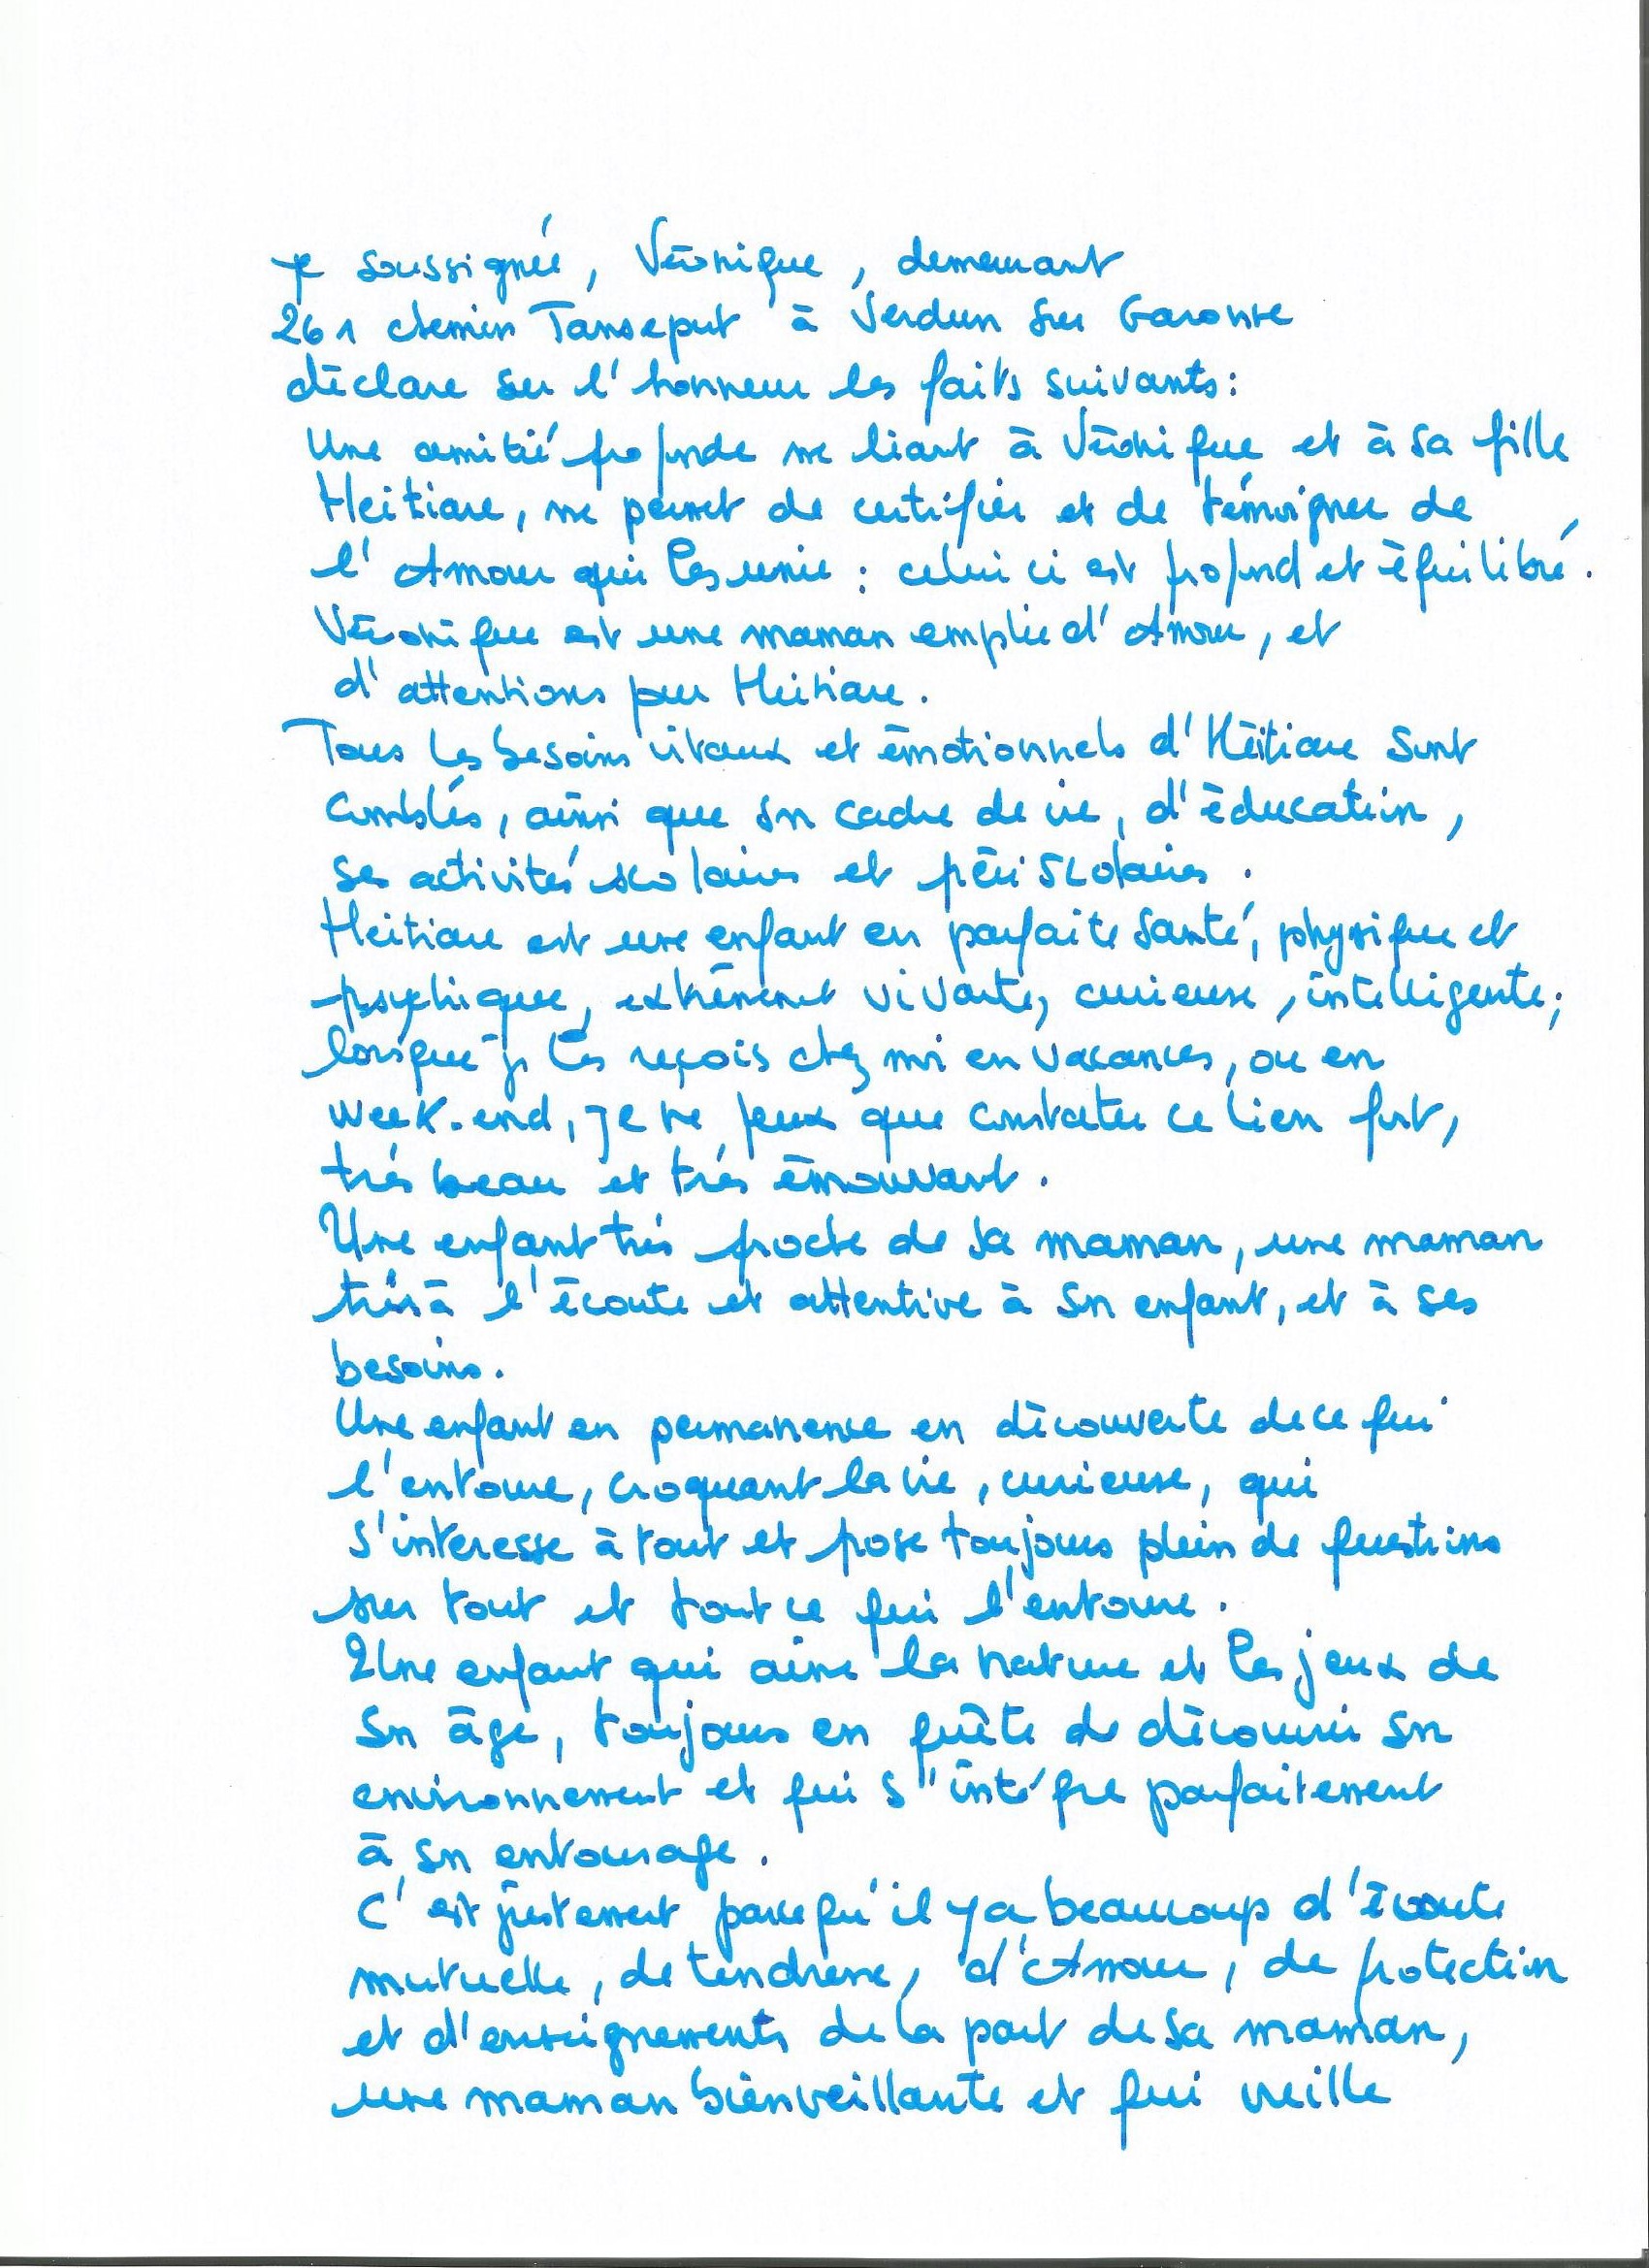 Je soussignée, Véronique, demeurant
261 chemin Tanseput à Verdun sur Garonne
déclare sur l'honneur les faits suivants :
Une amitié profonde me liant à Véronique et à sa fille
Heitiare, me permet de certifier et de témoigner de
l'Amour qui les unie : celui ci est profond et équilibré.
Véronique est une maman emplie d'Amour, et
d'attentions pour Heitiare.
Tous les besoins vitaux et émotionnels d'Héitiare sont
comblés, ainsi que son cadre de vie, d'éducation,
ses activités scolaires et péri scolaires.
Heitiare est une enfant en parfaite santé, physique et
psychique, extrêment vivante, curieuse, intelligente;
lorsque je les reçois chez moi en vacances, ou en
week-end, je ne peux que constater ce lien fort,
très beau et très émouvant.
Une enfant très proche de sa maman, une maman
très à l'écoute et attentive à son enfant, et à ses
besoins.
Une enfant en permanence en découverte de ce qui
l'entoure, croquant la vie, curieuse, qui
s'interesse à tout et pose toujours plein de questions
sur tout et tout ce qui l'entoure.
Une enfant qui aime la nature et les jeux de
son âge, toujours en quête de découvrir son
environnement et qui s'intégre parfaitement
à son entourage.
C'est justement parce qu'il y a beaucoup d'écoute
mutuelle, de tendresse, d'Amour, de protection
et d'enseignements de la part de sa maman,
une maman bienveillante et qui veille